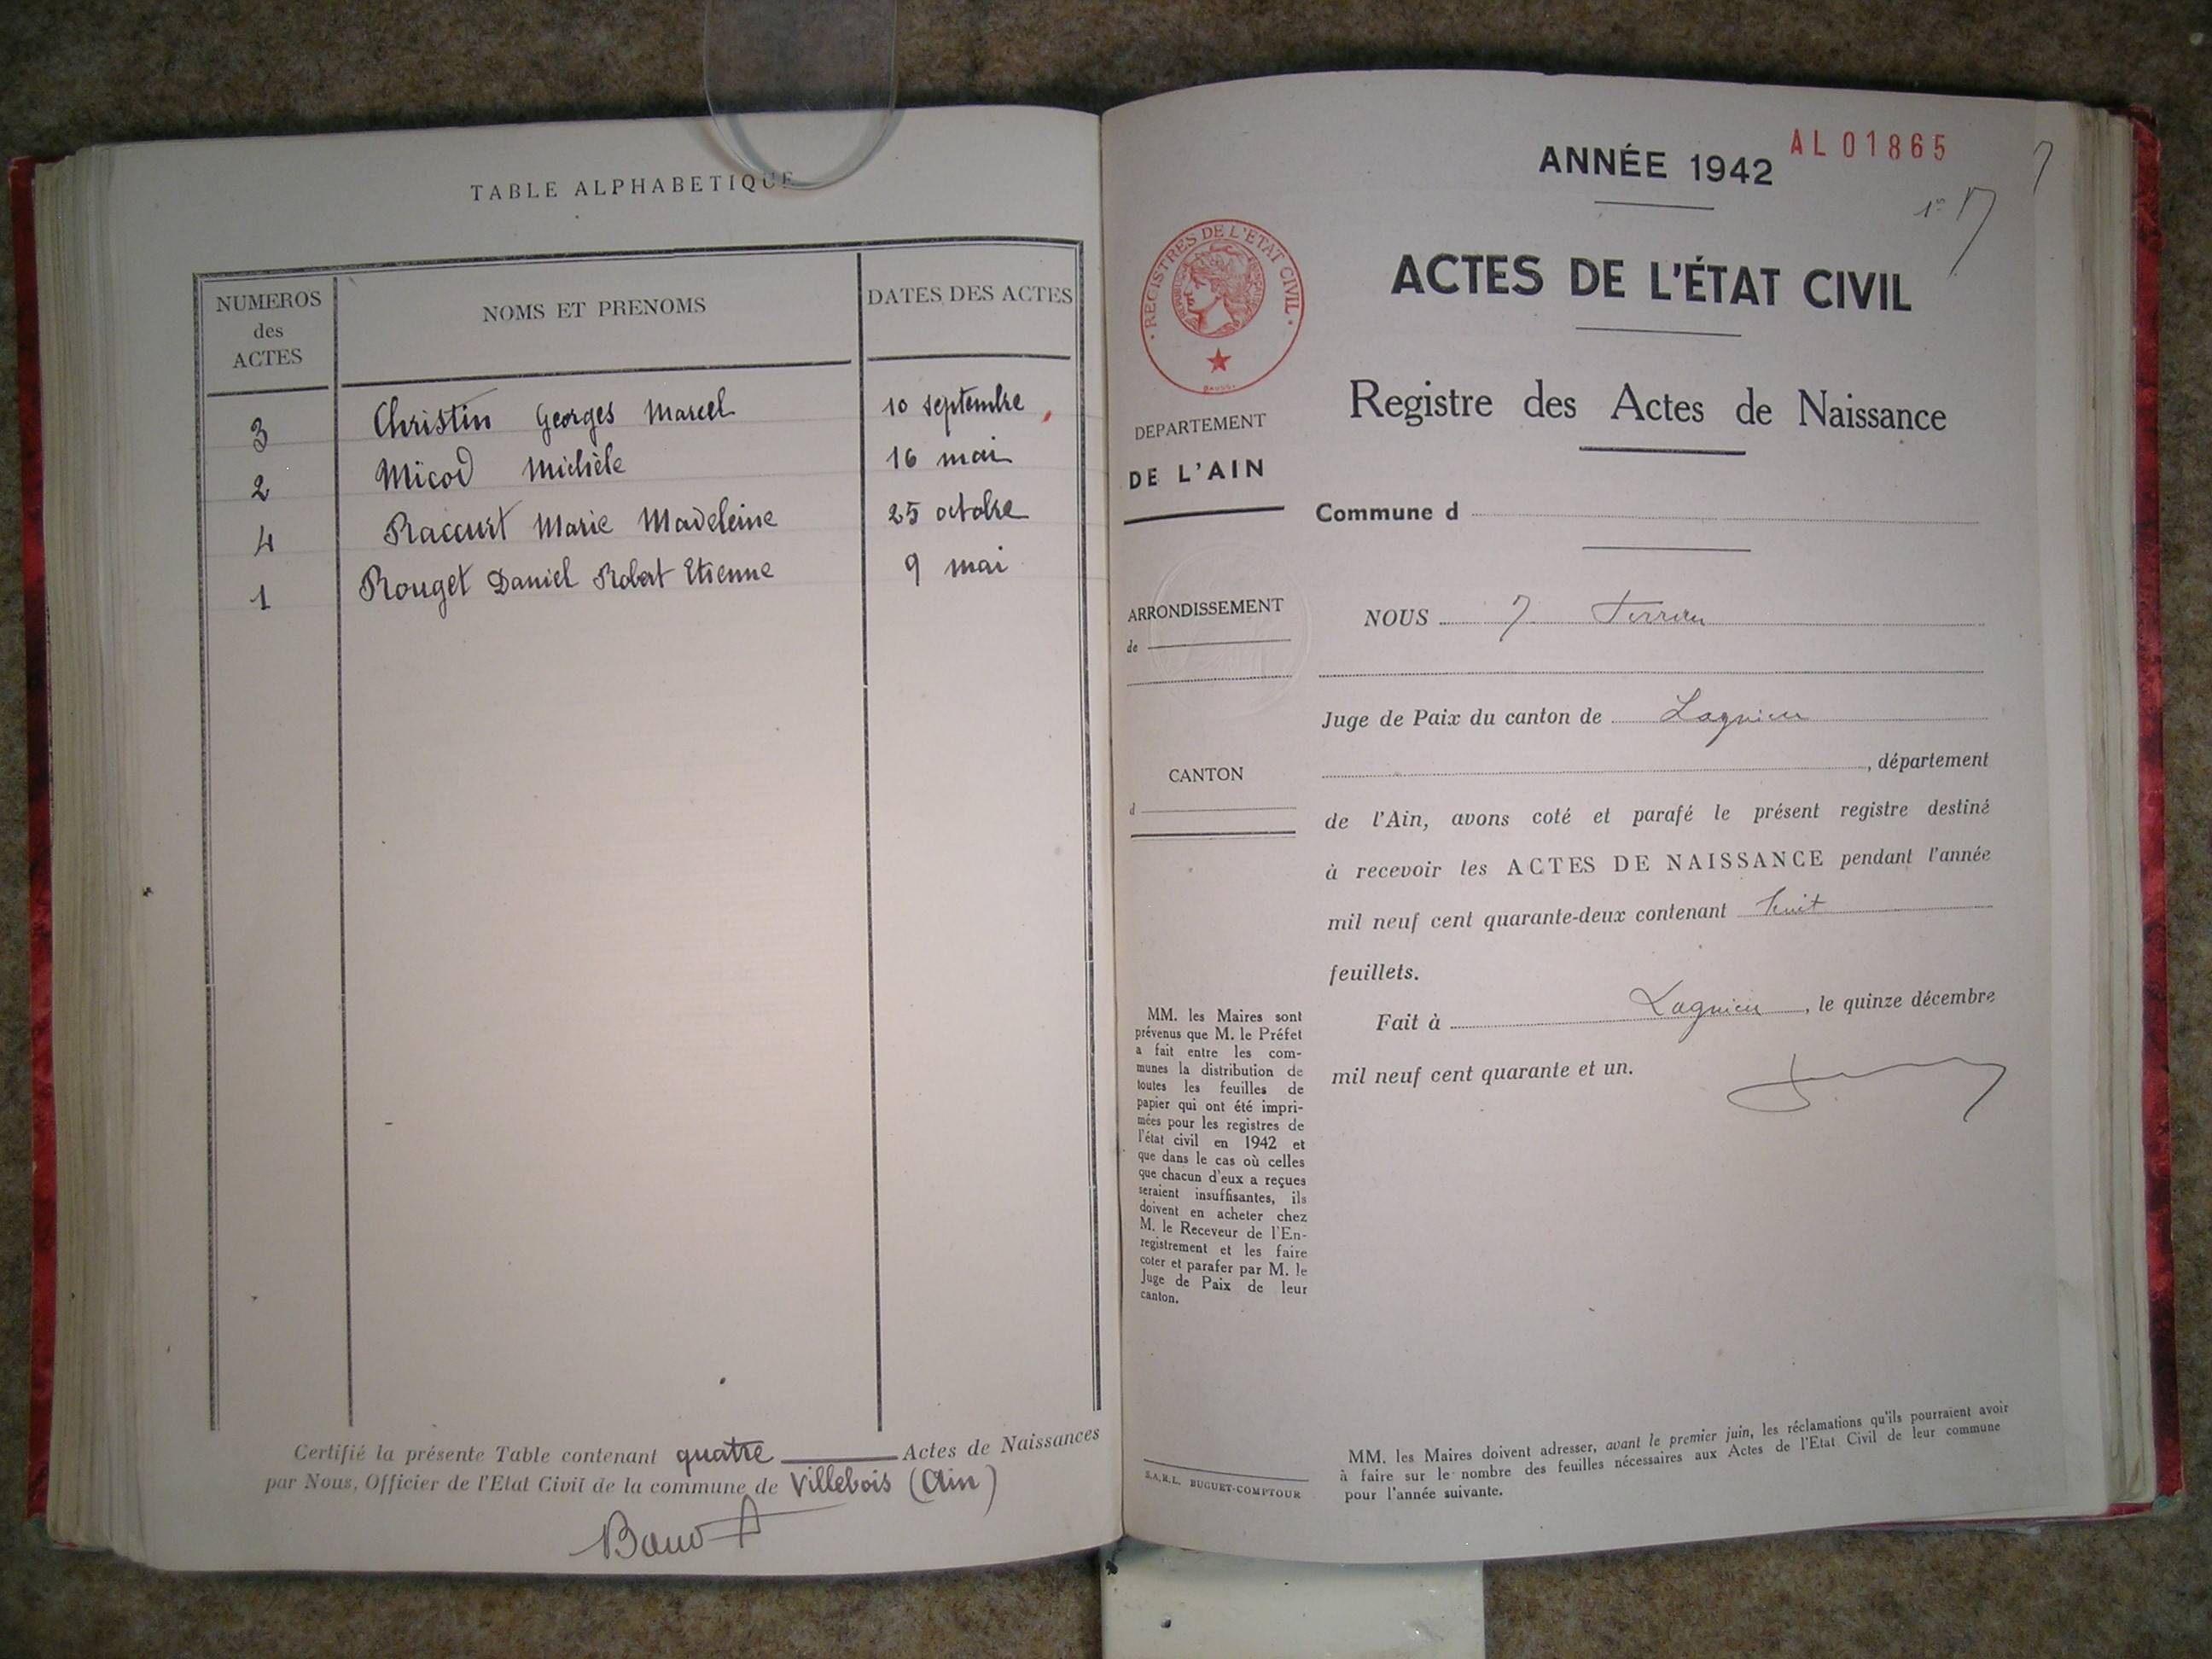 TABLE ALPHABETIQUE
NUMEROS
des
ACTES
NOMS ET PRENOMS
DATES DES ACTES
3 Christin Georges Marcel 10 septembre
2 Micod Michèle 16 mai
4 Raccurt Marie Madeleine 25 octobre
1 Rouget Daniel Robert Etienne 9 mai
Certifié la présente Table contenant quatre Actes de Naissances
par Nous, Officier de l'Etat Civil de la commune de Villebois (Ain)
ANNÉE 1942
AL01865
ACTES DE L'ÉTAT CIVIL
REGISTRES DE L'ETAT CIVIL
Registre des Actes de Naissance
DEPARTEMENT
DE L'AIN
Commune d
ARRONDISSEMENT
de
NOUS
Juge de Paix du canton de Lagnieu
CANTON
d
, département
de l'Ain, avons coté et parafé le présent registre destiné
à recevoir les ACTES DE NAISSANCE pendant l'année
mil neuf cent quarante-deux contenant huit
feuillets.
Fait à Lagnieu, le quinze décembre
mil neuf cent quarante et un.
MM. les Maires sont
prévenus que M. le Préfet
a fait entre les com-
munes la distribution de
toutes les feuilles de
papier qui ont été impri-
mées pour les registres de
l'état civil en 1942 et
que dans le cas où celles
que chacun d'eux a reçues
seraient insuffisantes, ils
doivent en acheter chez
M. le Receveur de l'En-
registrement et les faire
coter et parafer par M. le
Juge de Paix de leur
canton.
S.A.R.L. BUGUET-COMPTOUR
MM. les Maires doivent adresser, avant le premier juin, les réclamations qu'ils pourraient avoir
à faire sur le nombre des feuilles nécessaires aux Actes de l'Etat Civil de leur commune
pour l'année suivante.